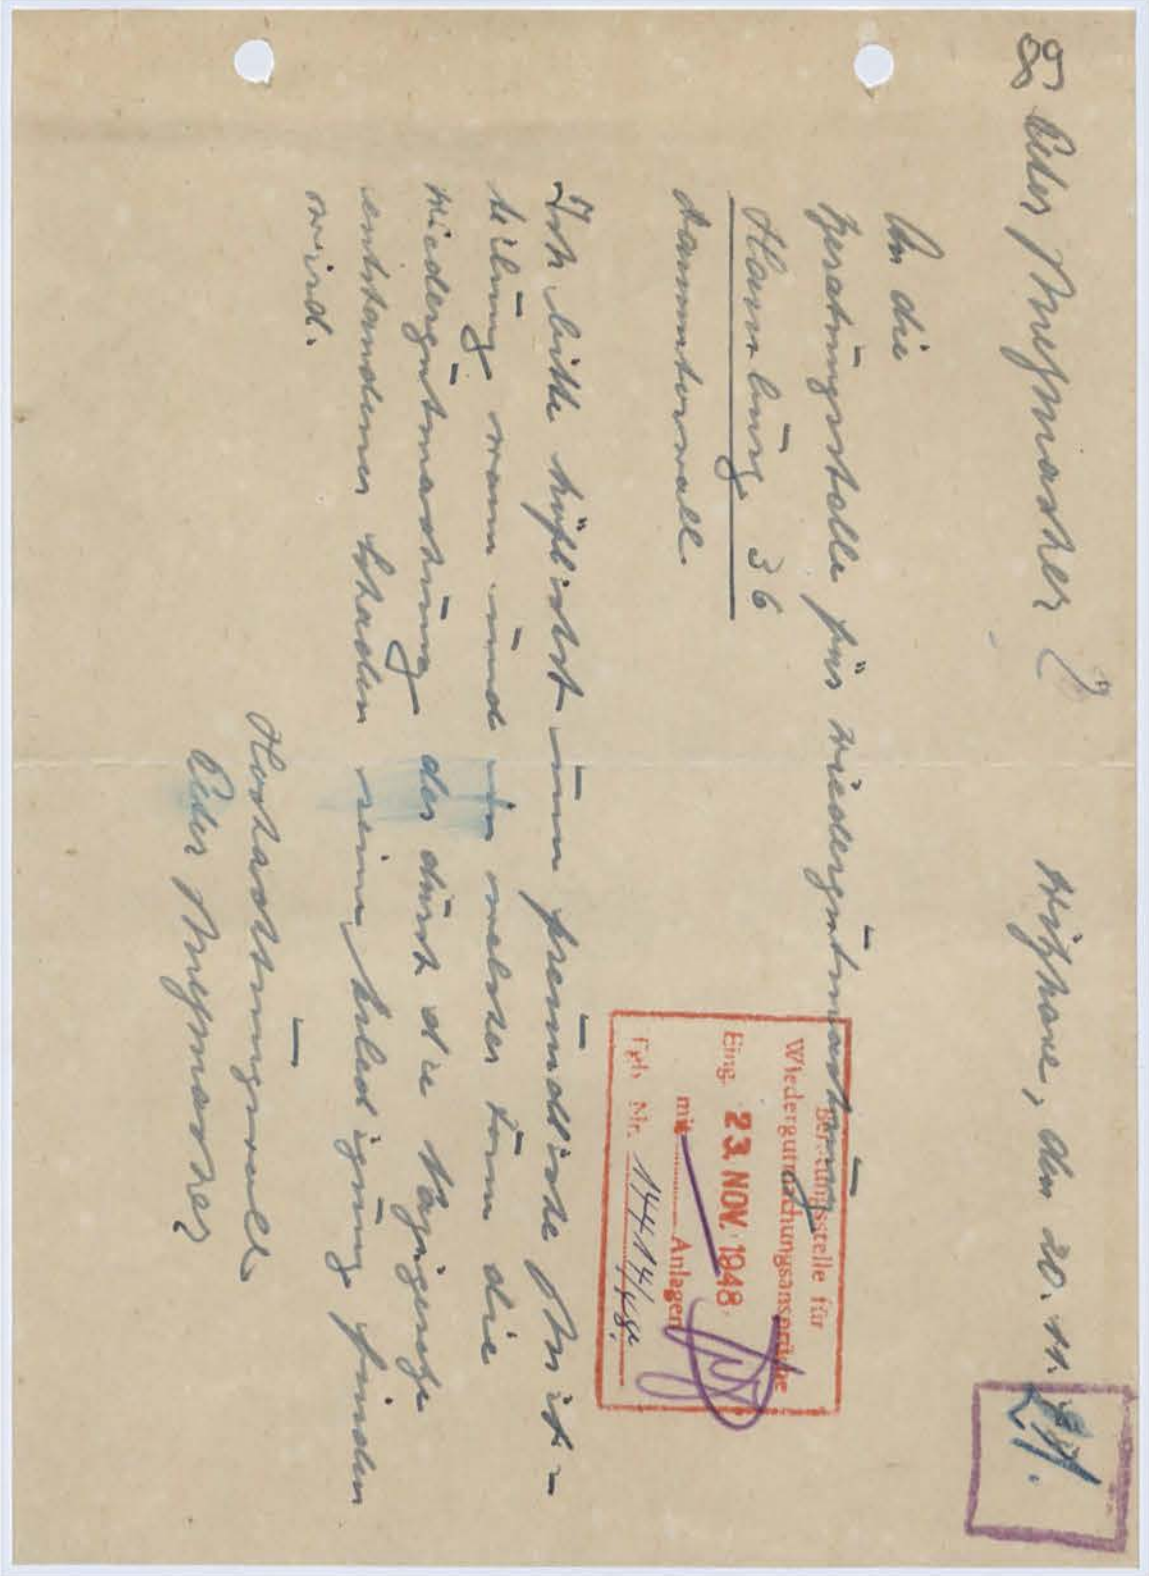 Peter Meÿmacher
den 20. 11.
An die
Beratungsstelle für Wiedergutmachung
Hamburg 36
Dammtorwall
Beratungsstelle für
Wiedergutmachungsansprüche
Eing. 23. NOV. 1948
mit Anlagen
Tgb. Nr. 14414/48
Ich bitte höflichst um freundliche Mit-
teilung wann und in welcher Form die
Wiedergutmachung der durch die
entstandenen Schaden seine Erledigung finden
wird.
Hochachtungsvoll
Peter Meÿmacher